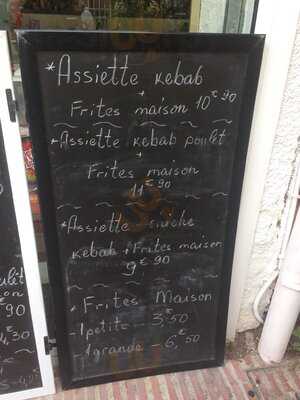 *Assiette kebab
+
Frites maison 10€90
*Assiette kebab poulet
+
Frites maison
11€90
*Assiette
kebab + Frites maison
9€90
*Frites Maison
-1 petite - 3,50
-1 grande - 6,50